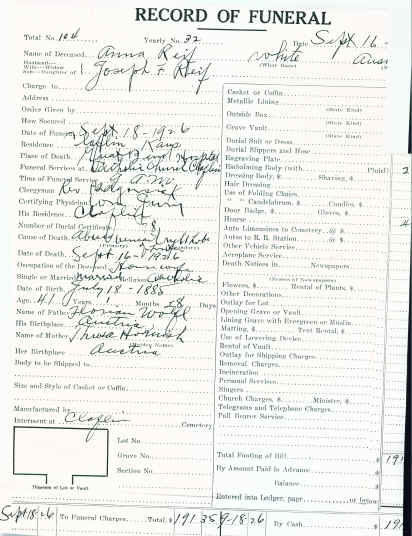 RECORD OF FUNERAL
Total No. 104 Yearly No. 32 Date Sept 16-
Name of Deceased Anna Reif white Aus
Husband Wife Widow
Son Daughter of Joseph F. Reif (What Race)
Charge to
Address
Order Given by
How Secured
Date of Funeral Sept. 18-1926
Residence Claflin Kans
Place of Death Great Bend Hospital
Funeral Services at Catholic Church Claflin
Time of Funeral 9 A-M.
Clergyman Rev.
Certifying Physician
His Residence Claflin
Number of Burial Certificate $
Cause of Death
(Primary)
Date of Death Sept 16-1926
Occupation of the Deceased Housewife
Single or Married Married Religion Catholic
Date of Birth July 18-1885
Age 41 Years 1 Months 28 Days
Name of Father Florian Wolf
His Birthplace Austria
Name of Mother
(Maiden Name)
Her Birthplace Austria
Body to be Shipped to
Size and Style of Casket or Coffin
Manufactured by
Interment at Claflin Cemetery
Lot No.
Grave No.
Section No.
Diagram of Lot or Vault
Casket or Coffin
Metallic Lining
(State Kind)
Outside Box
(State Kind)
Grave Vault
(State Kind)
Burial Suit or Dress
Burial Slippers and Hose
Engraving Plate
Embalming Body (with Fluid) 2
Dressing Body, $ Shaving, $
Hair Dressing
Use of Folding Chairs
" " Candelabrum, $ Candles, $
Door Badge, $ Gloves, $
Hearse 4
Auto Limousines to Cemetery @ $
Autos to R. R. Station @ $
Other Vehicle Service
Aeroplane Service
Death Notices in Newspapers
(Names of Newspapers)
Flowers, $ Rental of Plants, $
Other Decorations
Outlay for Lot
Opening Grave or Vault
Lining Grave with Evergreen or Muslin
Matting, $ Tent Rental, $
Use of Lowering Device
Rental of Vault
Outlay for Shipping Charges
Removal Charges
Incineration
Personal Services
Singers
Church Charges, $ Minister, $
Telegrams and Telephone Charges
Pall Bearer Service
Total Footing of Bill $ 191
By Amount Paid in Advance $
Balance $
Entered into Ledger, page or below
Sept 18 26 To Funeral Charges Total, $ 191 35 9-18-26 By Cash $ 191